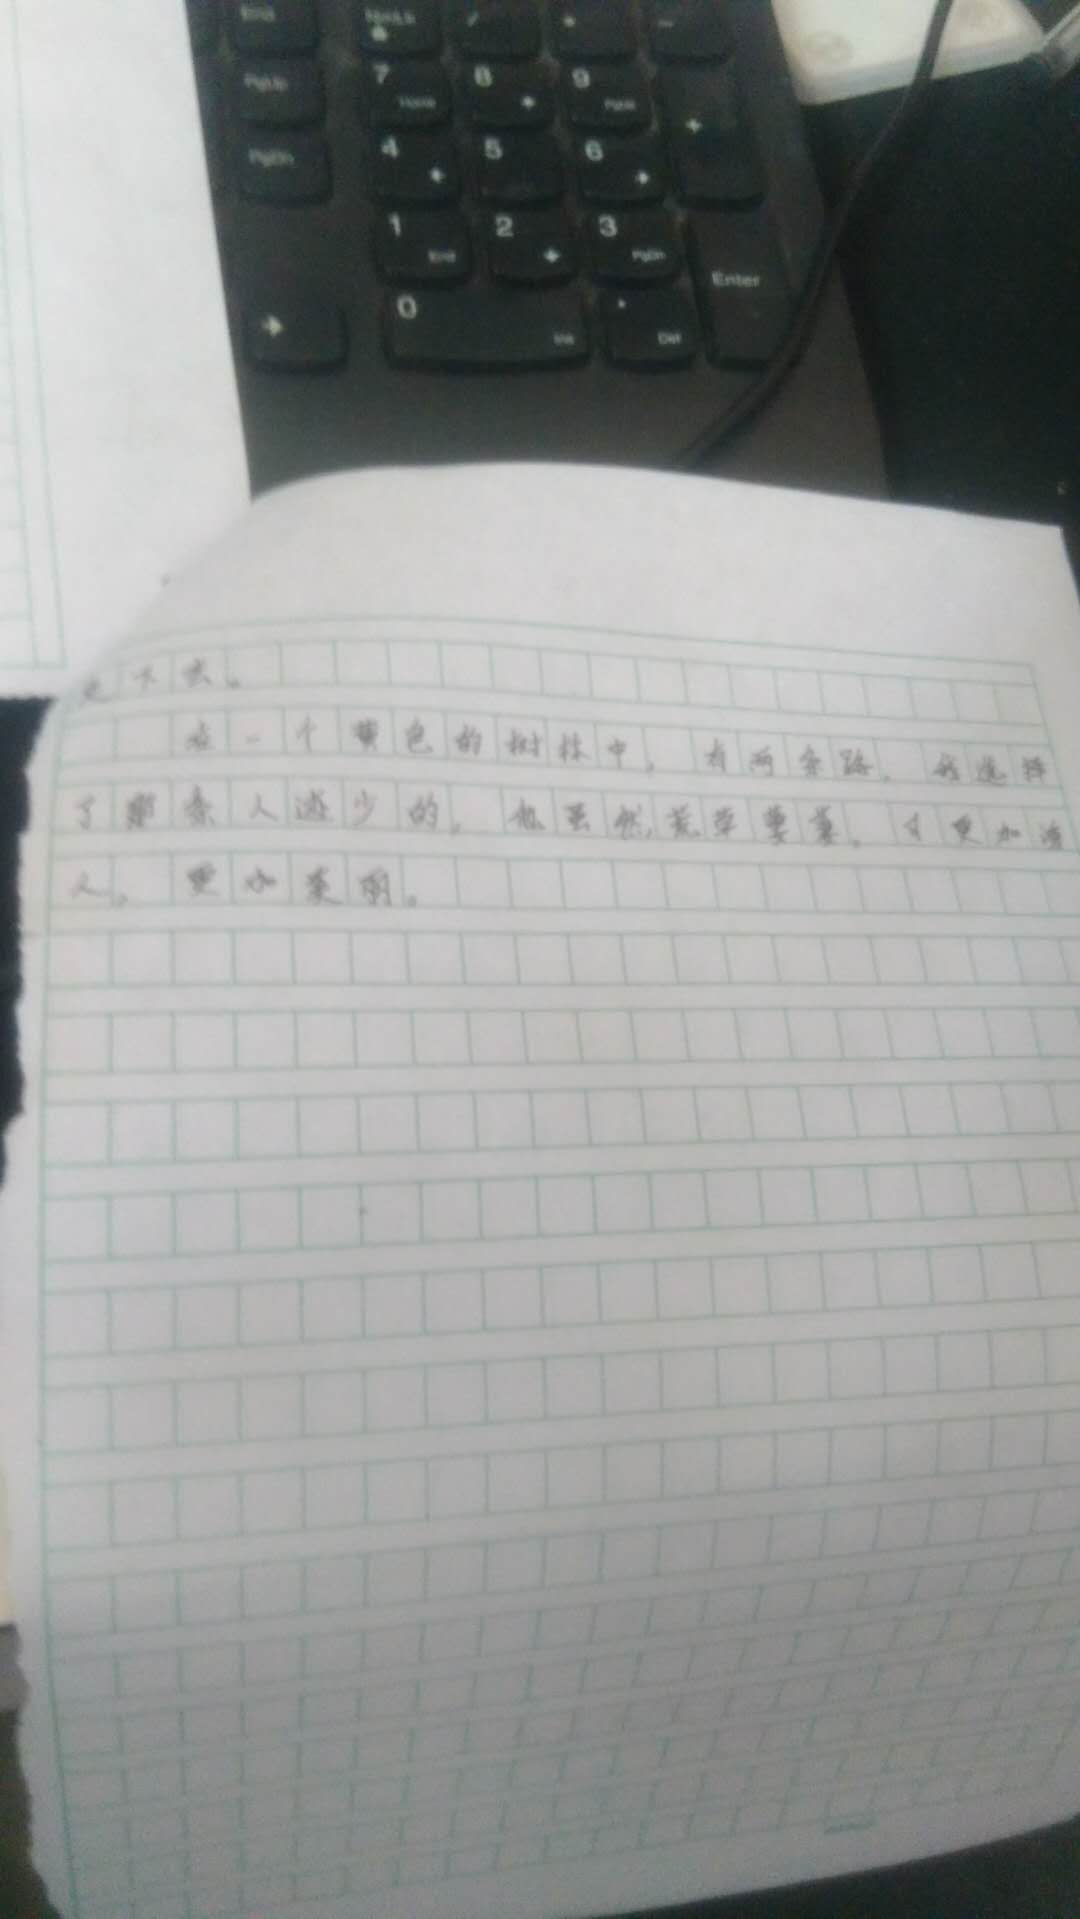 End NumLk / * -
PgUp 7 Home 8 9 PgUp +
PgDn 4 5 6
1 End 2 3 PgDn Enter
0 Ins . Del
下去。
在一个黄色的树林中,有两条路,我选择
了那条人迹少的,他虽然,荒草萋萋,才更加清
人,更加美丽。